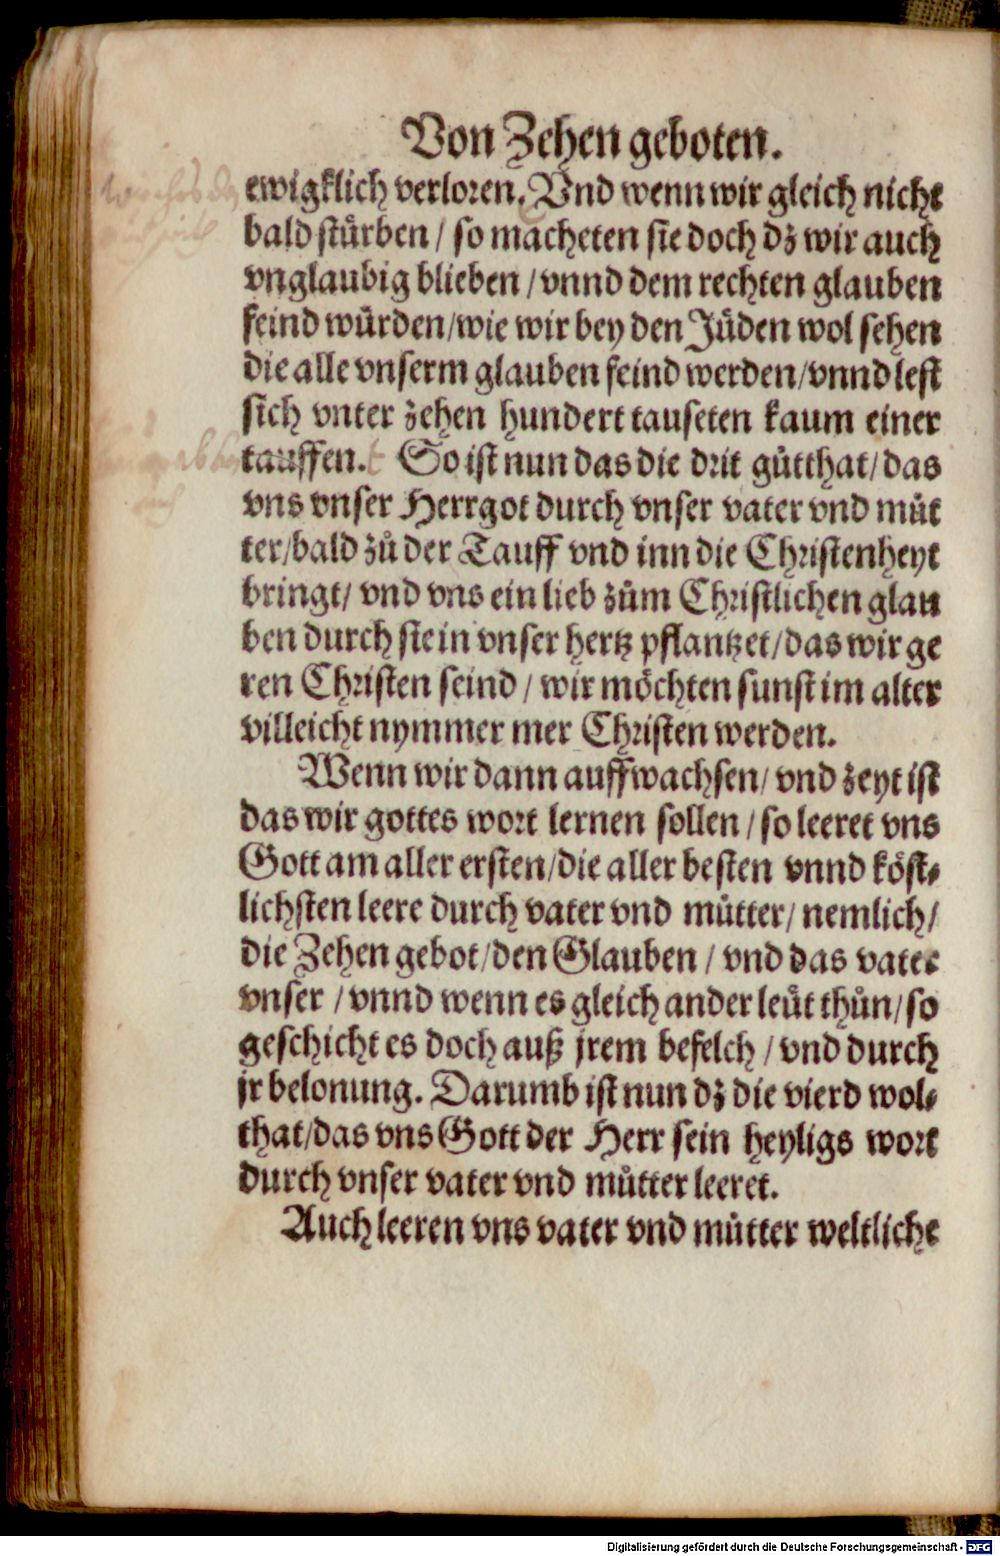 Von Zehen geboten.
ewigklich verloren. Vnd wenn wir gleich nicht
bald stürben / so macheten sie doch dz wir auch
vnglaubig blieben / vnnd dem rechten glauben
feind würden/wie wir bey den Jüden wol sehen
die alle vnserm glauben feind werden/vnnd lest
sich vnter zehen hundert tauseten kaum einer
tauffen. So ist nun das die drit gůtthat/das
vns vnser Herrgot durch vnser vater vnd můt
ter/bald zů der Tauff vnd inn die Christenheyt
bringt/ vnd vns ein lieb zům Christlichen glau
ben durch sie in vnser hertz pflantzet/das wir ge
ren Christen seind / wir möchten sunst im alter
villeicht nymmer mer Christen werden.
Wenn wir dann auffwachsen/ vnd zeyt ist
das wir gottes wort lernen sollen / so leeret vns
Gott am aller ersten/die aller besten vnnd köst⸗
lichsten leere durch vater vnd můtter/ nemlich/
die Zehen gebot/den Glauben / vnd das vater
vnser / vnnd wenn es gleich ander leüt thůn/so
geschicht es doch auß jrem befelch / vnd durch
jr belonung. Darumb ist nun dz die vierd wol⸗
that/das vns Gott der Herr sein heyligs wort
durch vnser vater vnd můtter leeret.
Auch leeren vns vater vnd můtter weltliche
Digitalisierung gefördert durch die Deutsche Forschungsgemeinschaft - DFG